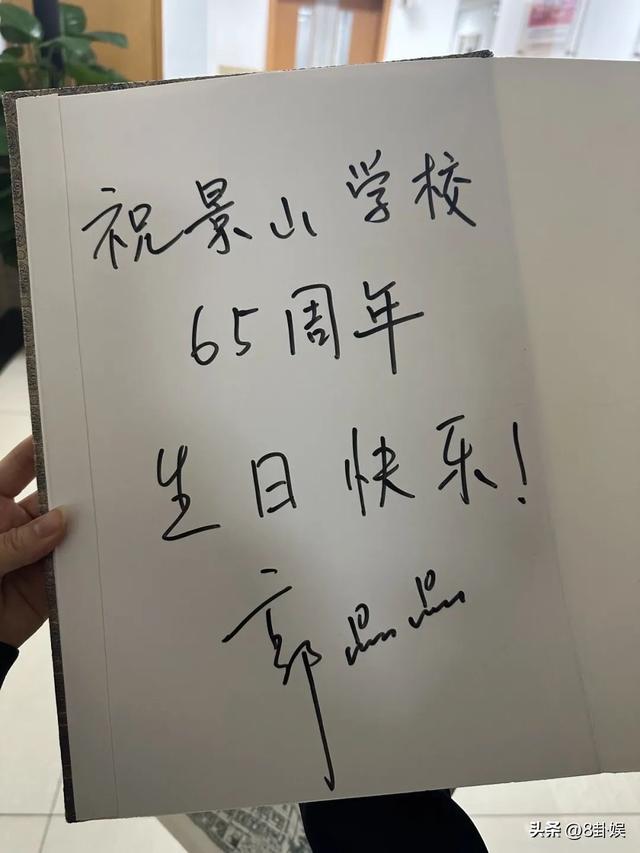 祝景山学校
65周年
生日快乐!
郭晶晶
头条 @8卦娱